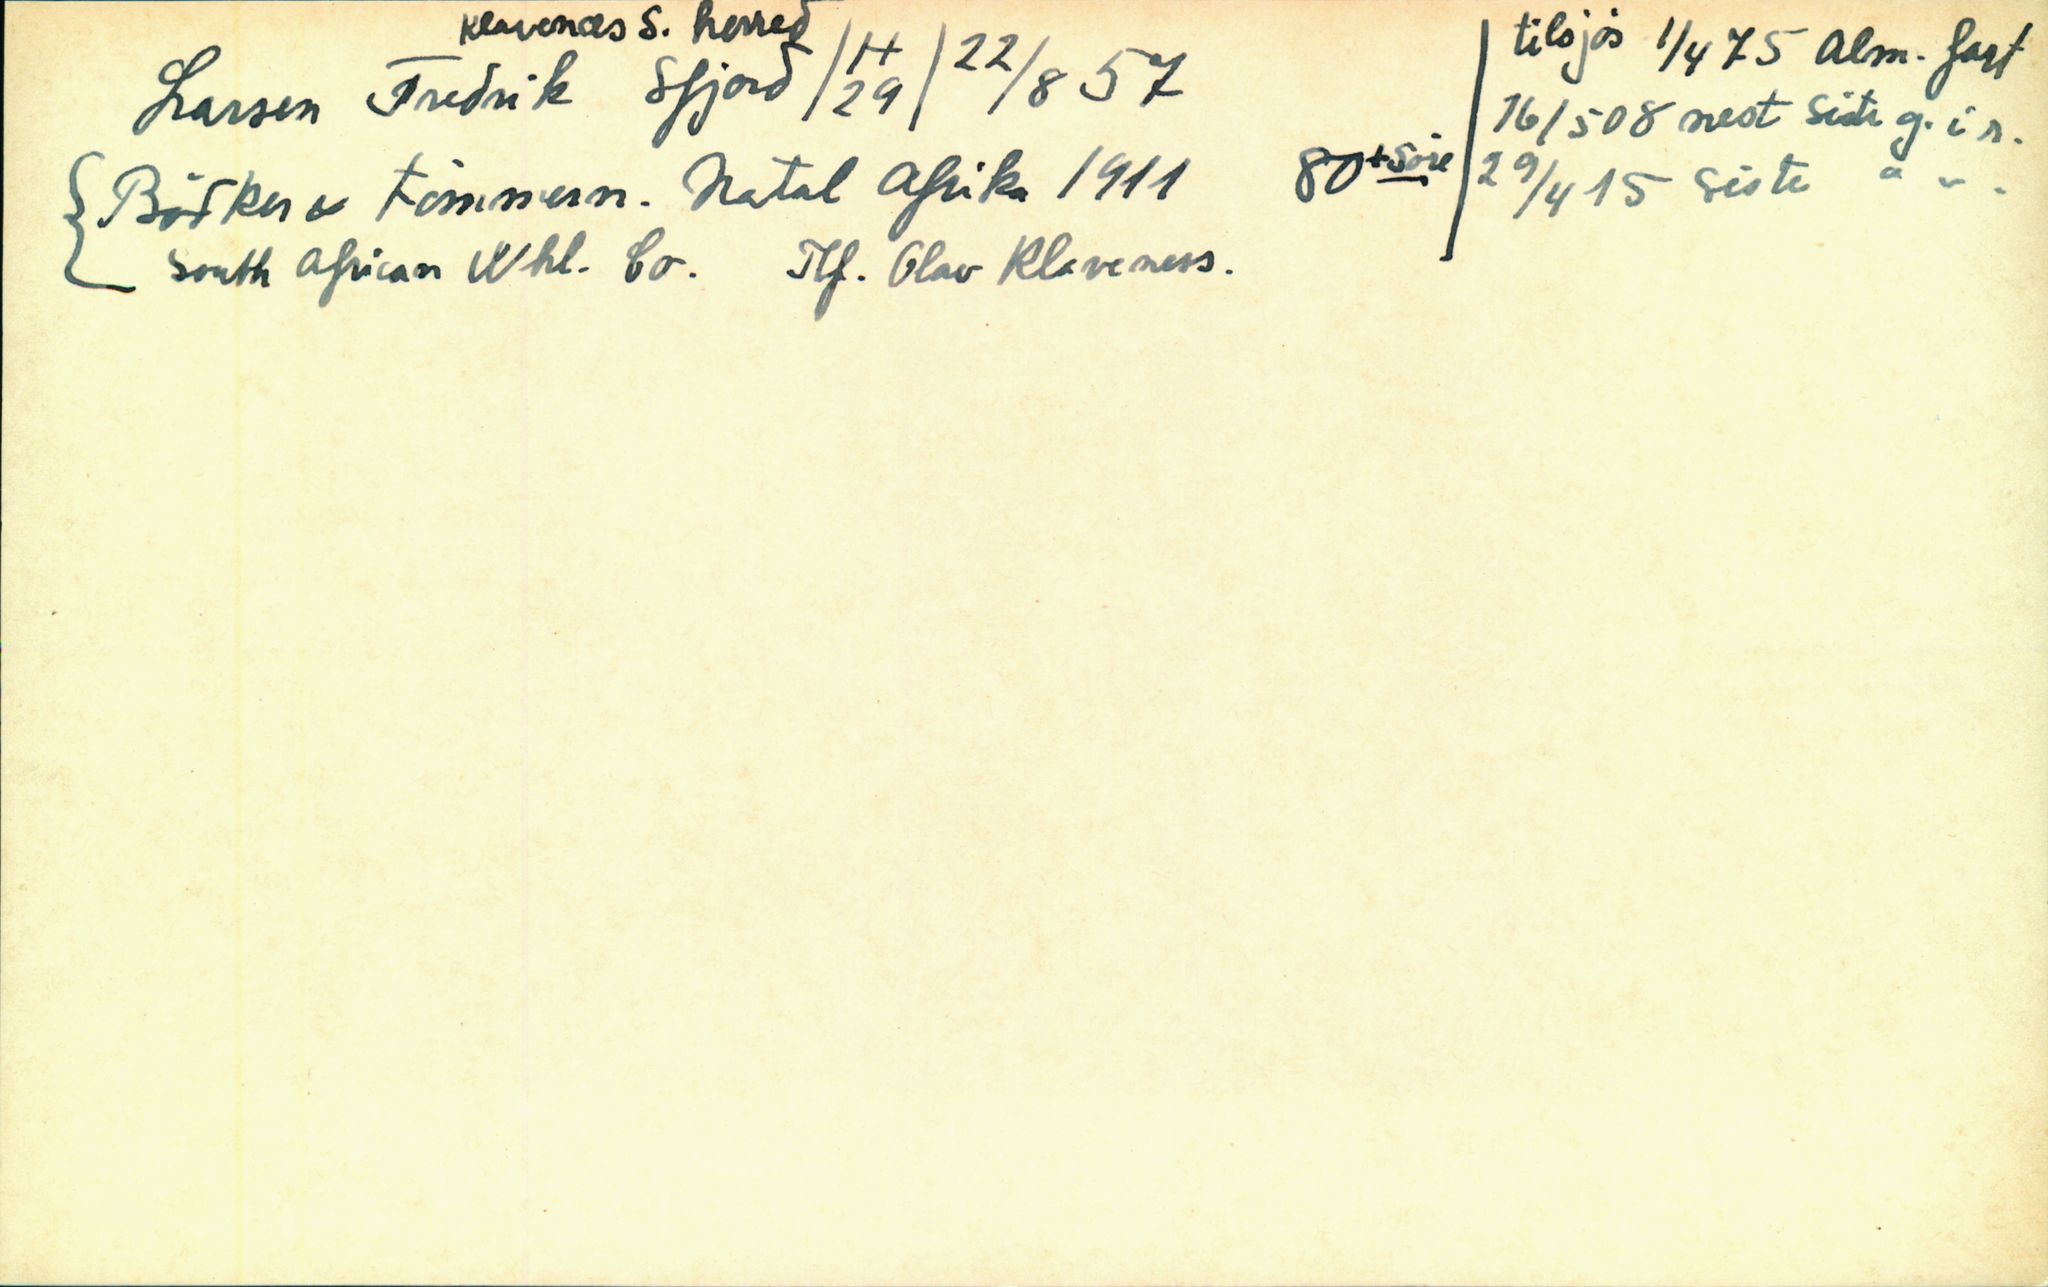 Klavenæs S. herred
Larsen Fredrik Sfjord / H 29 / 22/8 57
Bödker & tömmerm. Natal Afrika 1911 80 +
South African Whl. Co. Tlf. Olav Klaveness.
tilsjøs 1/4 75 Alm. fart
16/5 08 nest siste g. i r.
29/4 15 siste " " "